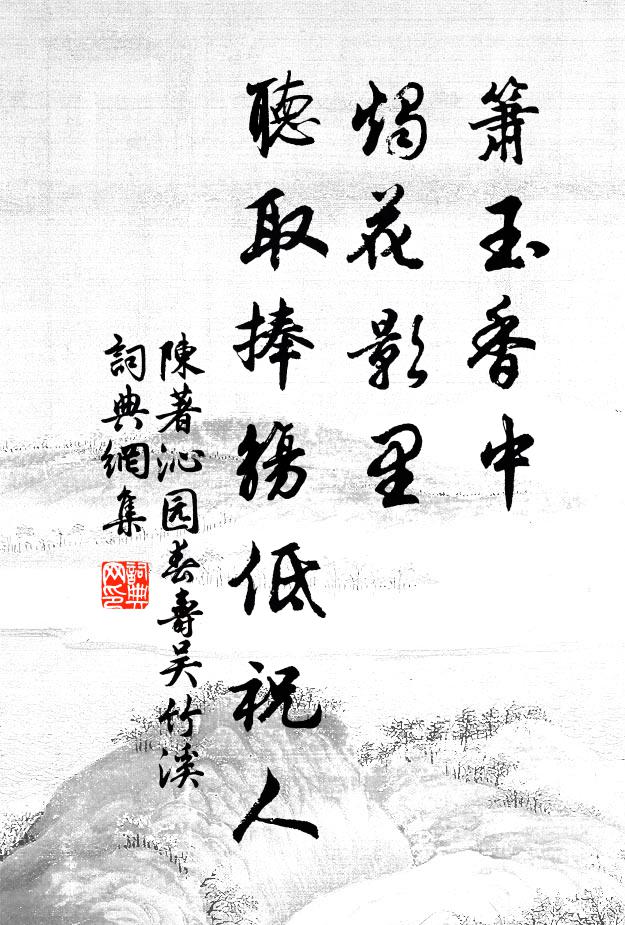 箫玉香中
烛花影里
聽取捧觴低祝人
陳著沁园春壽吴竹溪
詞典網集
詞典网印